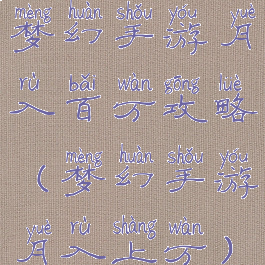 mèng huàn shǒu yóu yuè
梦幻手游月
rù bǎi wàn gōng luè
入百万攻略
mèng huàn shǒu yóu
（梦幻手游
yuè rù shàng wàn
月入上万）